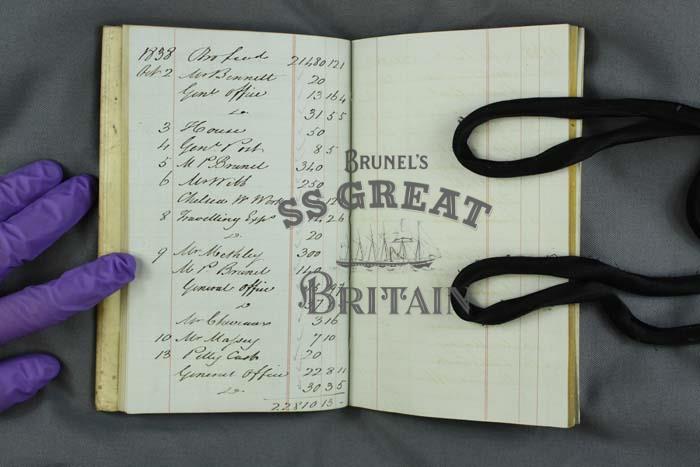 1838 Bro Ford 21480 12 1
Oct 2 Mr Bennett 20
Genl Office 13 16 4
Do 31 5 5
3 House 50
4 Genl Post 8 5
5 M P Brunel 340
6 Mr Webb 250
Chelsea W Work
8 Travelling Exps 2 6
Do 20
9 300
M P Brunel 140
General Office
Do
Mr 3 16
10 Mr Massey 7 10
13 Petty Cash 20
General Office 22 8 11
Do 30 3 5
22810 13 -
BRUNEL'S
SS GREAT
BRITAIN